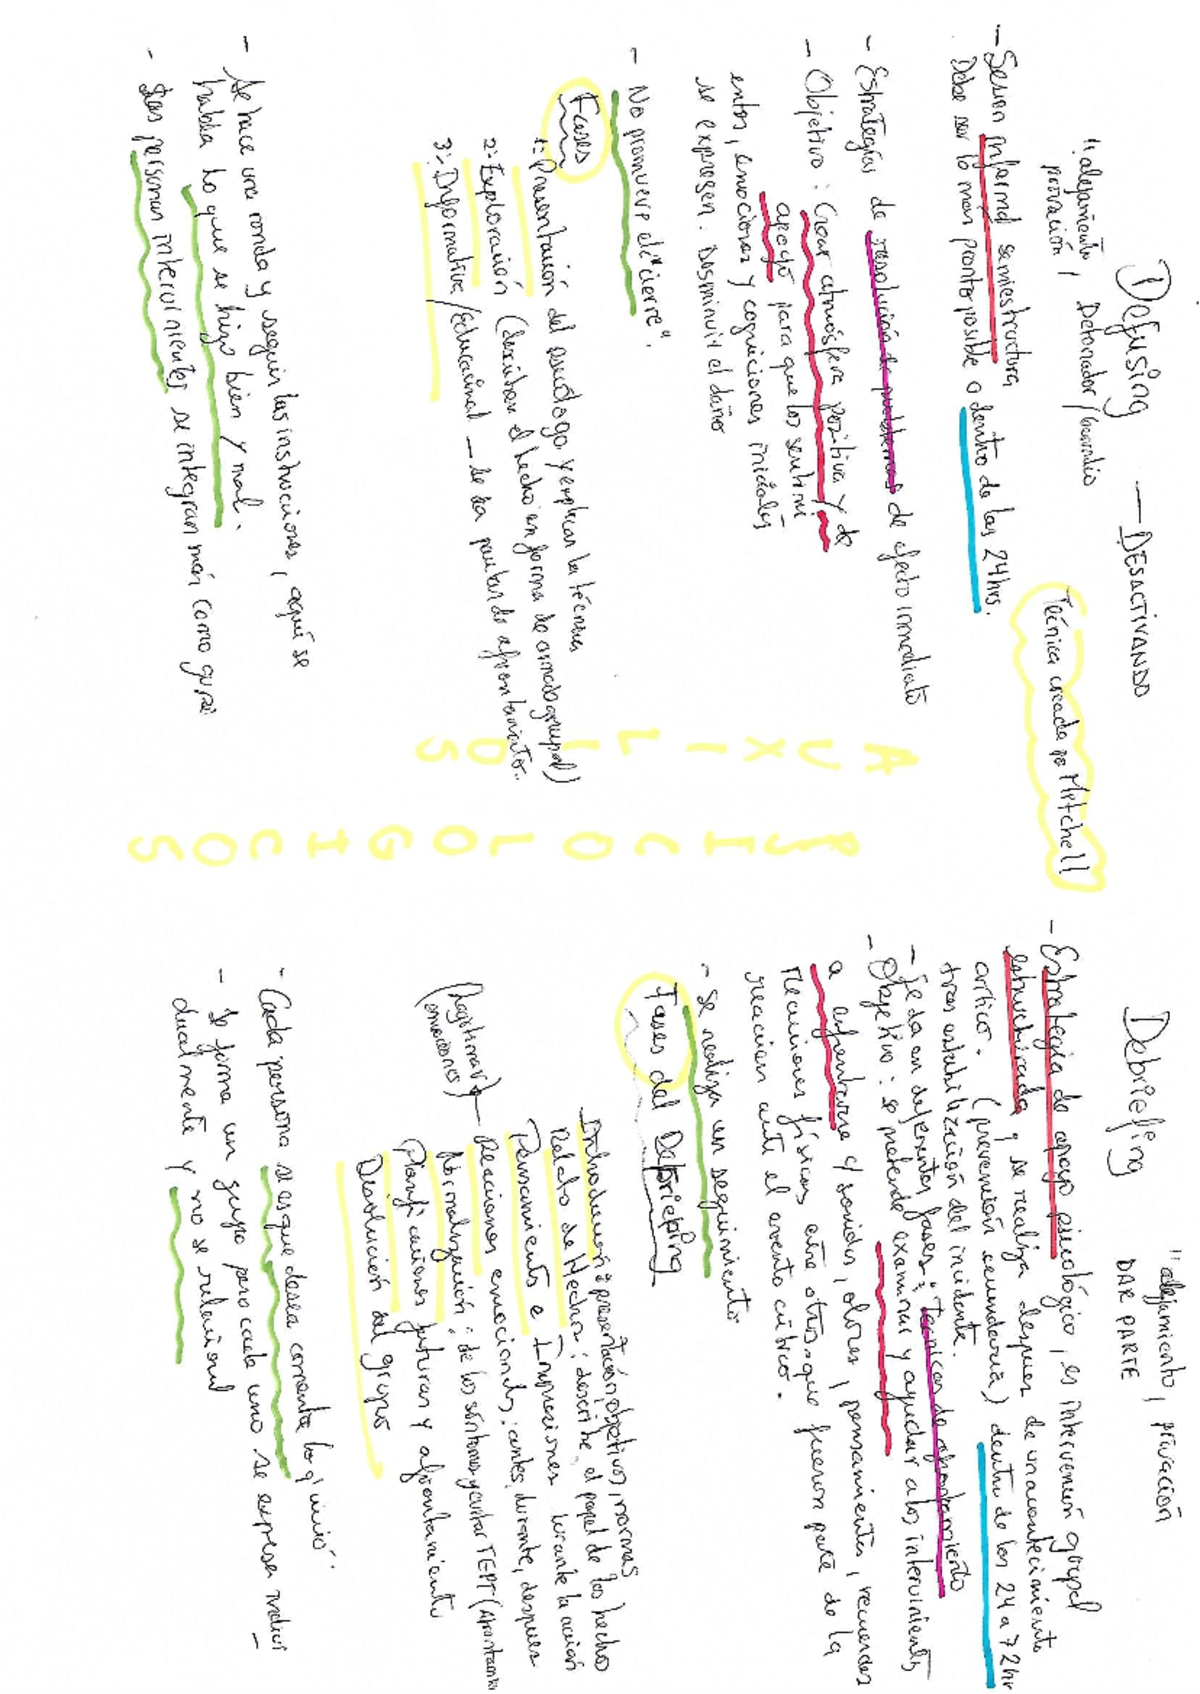 Defusing — DESACTIVANDO
"alejamiento, Detonador /
privación,
Técnica creada po Mitchell
- Sesión informal semiestructura
Debe ser lo más pronto posible o dentro de las 24hrs.
- Estrategias de resolución de problemas de efecto inmediato
- Objetivo: Crear atmósfera positiva y de
apoyo para que los sentimi
entos, emociones y cogniciones iniciales
se expresen. Disminuir el daño
- No promueve el "cierre".
Fases
1: Presentación del psicólogo y explican la técnica
2: Exploración (describen el hecho en forma de grupal)
3: Informativa/Educacional — se da pautas de afrontamiento.
- Se hace una ronda y seguir las instrucciones, aquí se
habla lo que se hizo bien y mal.
- Las personas intervinientes se integran más como guías
AUXILIOS
PSICOLOGICOS
Debriefing
"alejamiento, privación
DAR PARTE
- Estrategia de apoyo psicológico, es intervención grupal
estructurada y se realiza despues de un acontecimiento
crítico. (prevención secundaria) dentro de las 24 a 72hr
tras estabilización del incidente.
- Se da en diferentes fases: Técnicas de afrontamiento
- Objetivo: se pretende examinar y ayudar a los intervinientes
a afrontarse c/ sonidos, olores, pensamientos, recuerdos
reacciones físicas entre otros, que fueron parte de la
reacción ante el evento crítico.
- Se realiza un seguimiento
Fases del Debriefing
Introducción: presentación, objetivos, normas
Relato de Hechos: describe el papel de los hechos
Pensamiento e Impresiones durante la acción
(Legitimar emociones) Reacciones emocionales: antes, durante, despues
Normalización: de los síntomas y evitar TEPT (
Planificaciones futuras y afrontamiento
Disolución del grupo
- Cada persona si es que desea comenta lo q' vivió.
- Se forma un grupo pero cada uno se expresa indivi-
dualmente y no se relacional